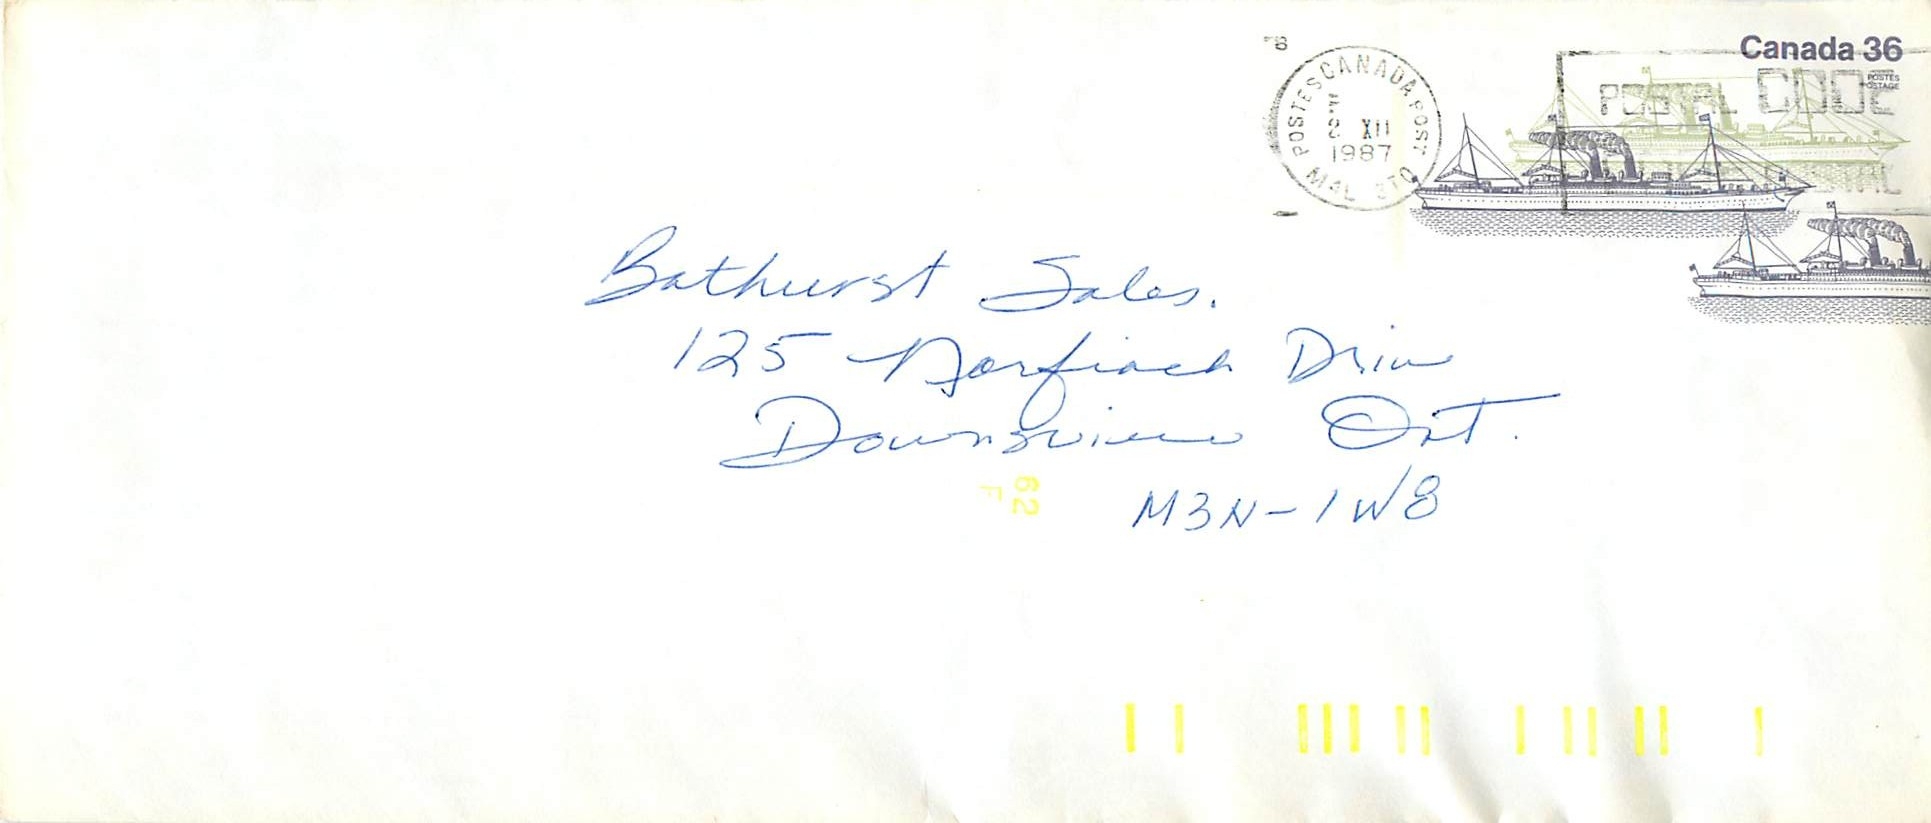 Canada 36
POSTES
POSTAGE
POSTAL CODE
POSTES CANADA POST
XII
1987
M4L 3T0
Bathurst Sales.
125 Norfinch Drive
Downsview Ont.
M3N-1W8
62
F